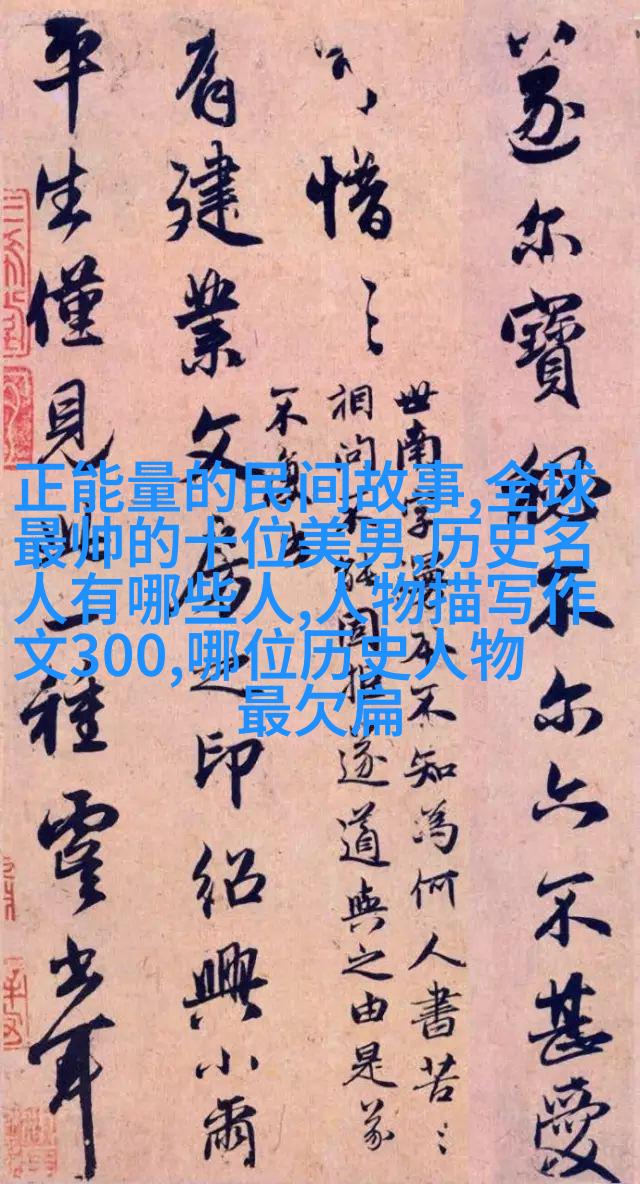 正能量的民间故事,全球
最帅的十位美男,历史名
人有哪些人,人物描写作
文300,哪位历史人物
最欠扁
遂尔寶 不尔亦不甚愛
世南 不知為何人書苦〻
相问 遂道與之由是遂
不復
可惜〻
有建業文房之印紹興小爾
平生僅見此一種虞書耳